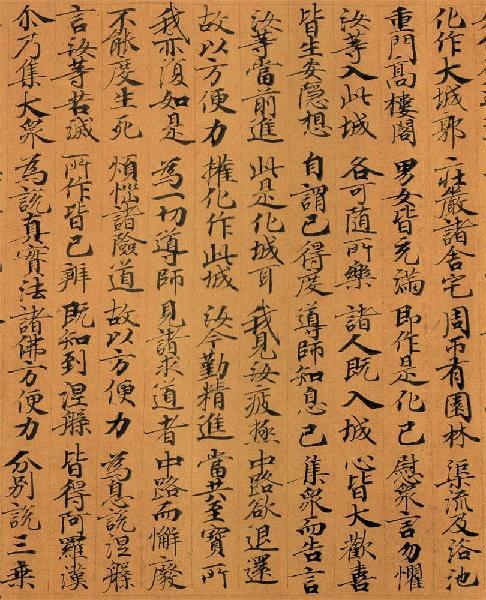 化作大城郭 庄嚴諸舍宅 周帀有園林 渠流及浴池
重門高樓閣 男女皆充滿 即作是化已 慰衆言勿懼
汝等入此城 各可隨所樂 諸人既入城 心皆大歡喜
皆生安隱想 自謂已得度 導師知息已 集衆而告言
汝等當前進 此是化城耳 我見汝疲極 中路欲退還
故以方便力 權化作此城 汝今勤精進 當共至寶所
我亦復如是 為一切導師 見諸求道者 中路而懈廢
不能度生死 煩惱諸險道 故以方便力 為息說涅槃
言汝等苦滅 所作皆已辦 既知到涅槃 皆得阿羅漢
尒乃集大衆 為說真實法 諸佛方便力 分別說三乘